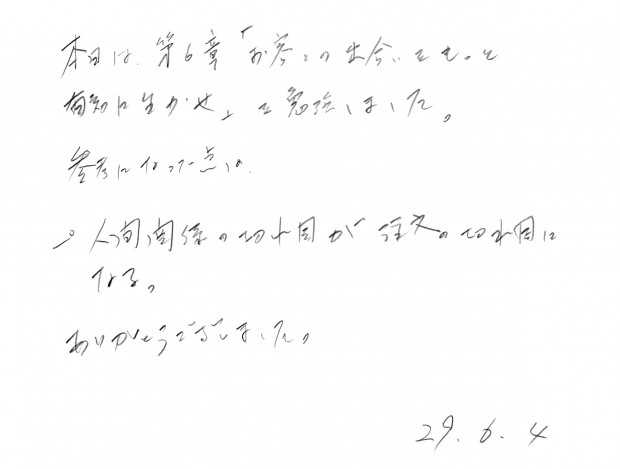 本日は、第6章「お客との出会いをもっと
有効に生かせ」を勉強しました。
参考になった点は、
・人間関係の切れ目が注文の切れ目に
なる。
ありがとうございました。
29.6.4